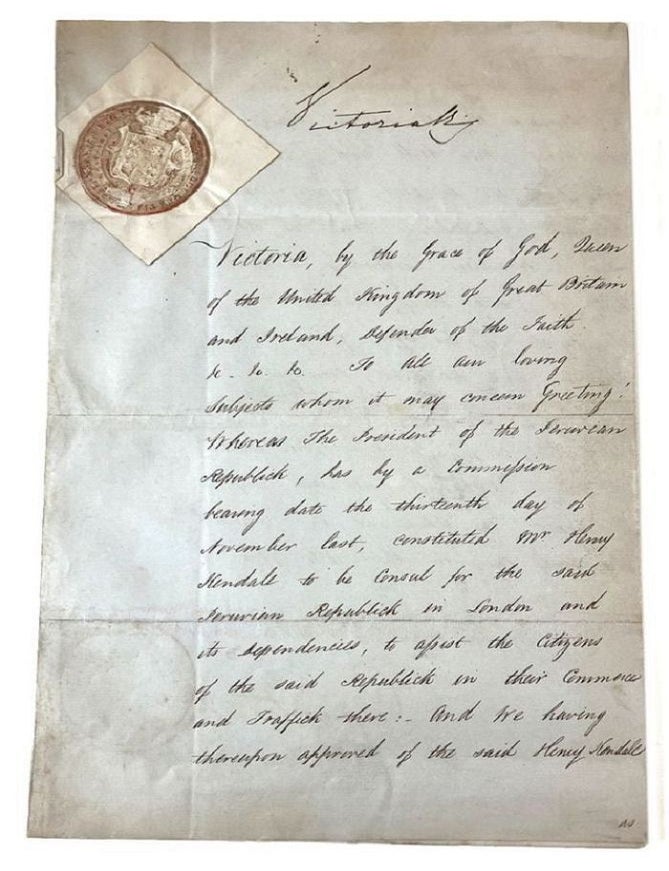 Victoria R
Victoria, by the Grace of God, Queen
of the United Kingdom of Great Britain
and Ireland, Defender of the Faith.
&. &. &. To all our loving
Subjects whom it may concern Greeting!
Whereas The President of the Peruvian
Republick, has by a Commission
bearing date the thirteenth day of
November last, constituted Mr Henry
Kendall to be Consul for the said
Peruvian Republick in London and
its dependencies, to assist the Citizens
of the said Republick in their Commerce
and Traffick there:- And We having
thereupon approved of the said Henry Kendall
as